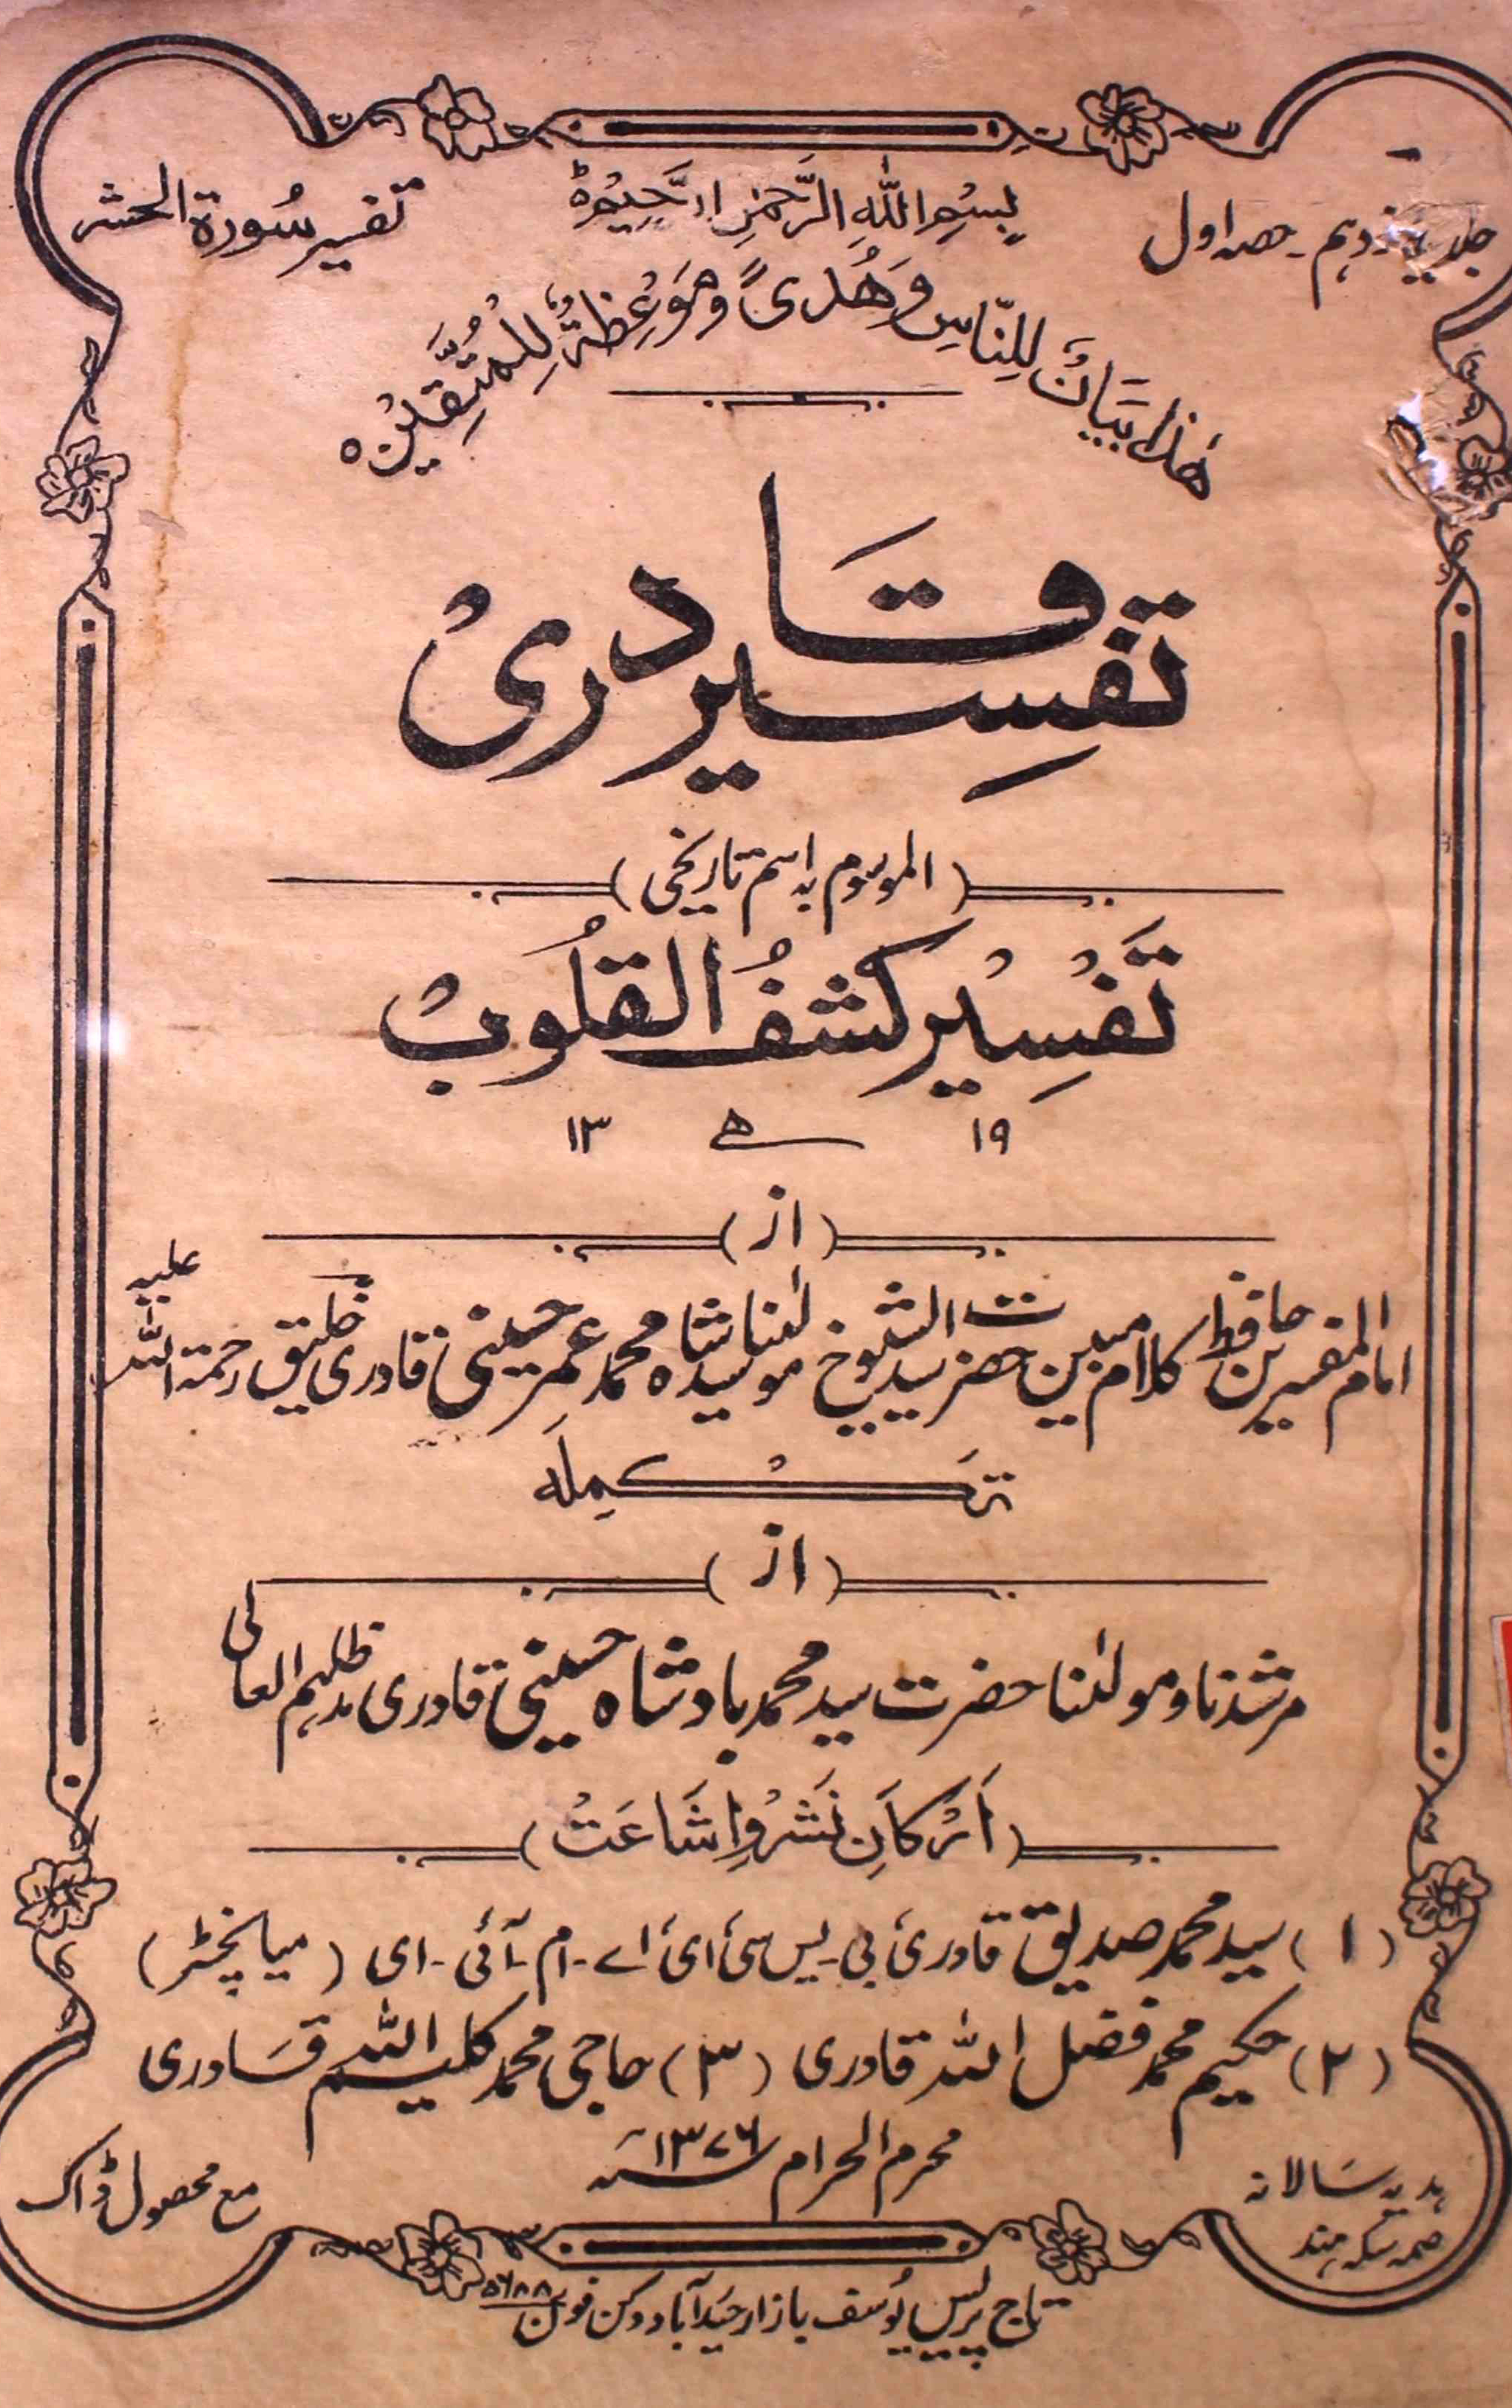 جلد یازدہم - حصہ اول
بِسْمِ اللّٰہِ الرَّحْمٰنِ الرَّحِیْمِ
تفسیر سُورۃ الحشر
ھٰذَا بَیَانٌ لِلنَّاسِ وَھُدًی وَّمَوْعِظَۃٌ لِلْمُتَّقِیْنَ
تفسِیر قَادری
(الموسوم بہ اسم تاریخی)
تَفْسِیْر کشفُ القلُوبْ
۱۹ ھ ۱۳
(از)
امام المفسرین حافظ کلام مبین حضرت سید الشیوخ مولٰنا سید شاہ محمد عمر حسینی قادری خلیق رحمۃ اللہ علیہ
تَکْمِلَہ
(از)
مرشدنا و مولٰنا حضرت سید محمد بادشاہ حسینی قادری مدظلہم العالی
(اَرْکَانِ نَشْرُ و اِشَاعَتْ)
(۱) سید محمد صدیق قادری بی-یس سی ای اے-ام-آئی-ای (میانچٹر)
(۲) حکیم محمد فضل اللہ قادری (۳) حاجی محمد کلیم اللہ قَادری
محرم الحرام ۱۳۷۶
ہدیہ سَالانہ
سکہ ہند
مع محصول ڈاک
تاج پریس یُوسف بازار حیدرآباد دکن فون